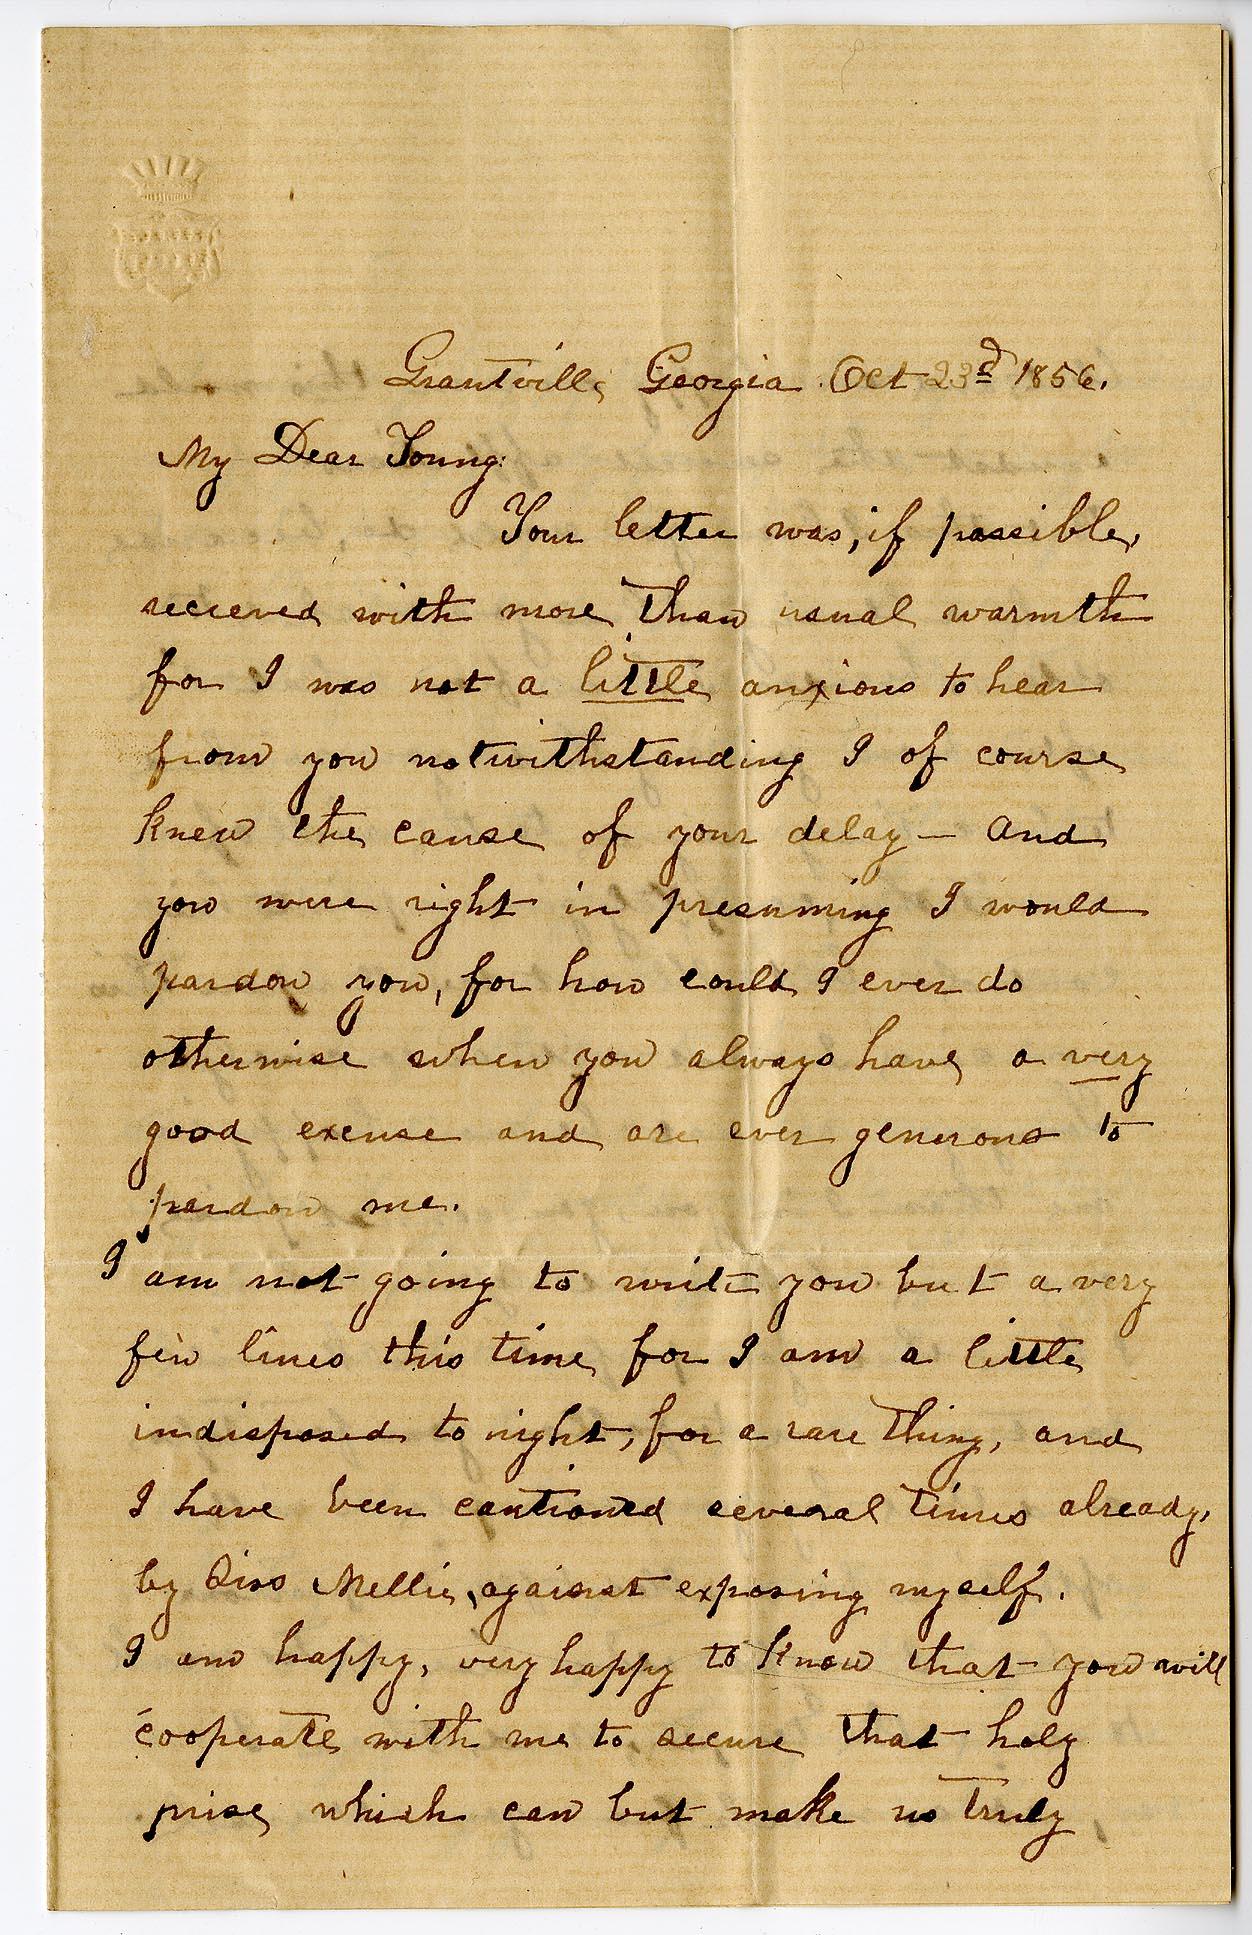 Grantville Georgia Oct 23d 1856.
My Dear Young:
Your letter was, if possible,
recieved with more than usual warmth
for I was not a little anxious to hear
from you notwithstanding I of course
knew the cause of your delay — and
you were right in presuming I would
pardon you, for how could I ever do
otherwise when you always have a very
good excuse and are ever generous to
pardon me.
I am not going to write you but a very
few lines this time for I am a little
indisposed to night, for a rare thing, and
I have been cautioned several times already,
by Siss Mellie, against exposing myself.
I am happy, very happy to know that you will
cooperate with me to secure that holy
prise which can but make us truly